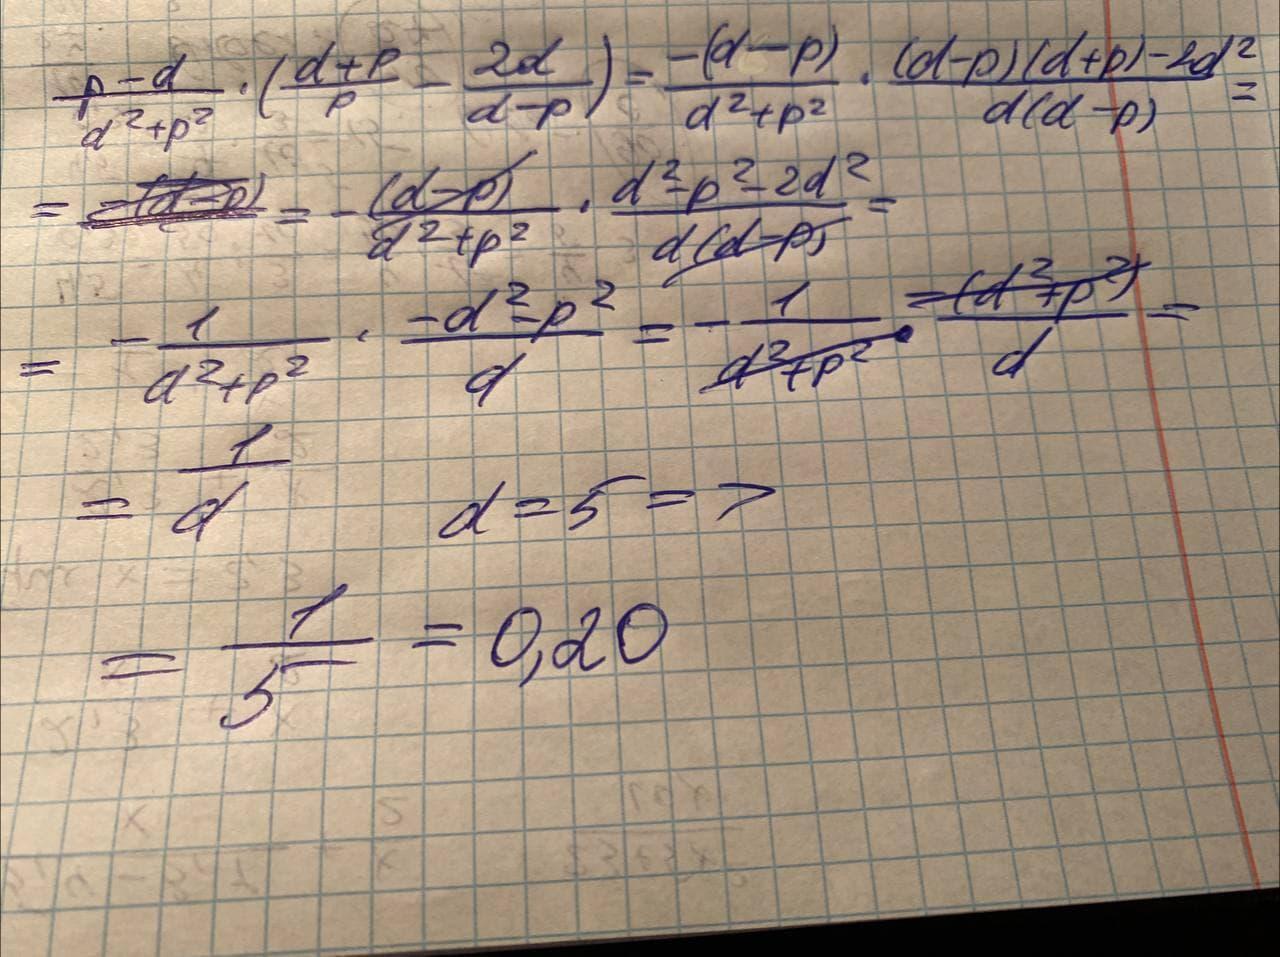 p-d/d²+p² · (d+p/p - 2d/d-p) = -(d-p)/d²+p² · (d-p)(d+p)-2d²/d(d-p) =
= -(d-p) = -(d-p)/d²+p² · d²-p²-2d²/d(d-p) =
= -1/d²+p² · -d²-p²/d = -1/d²+p² · -(d²+p²)/d =
= 1/d d=5=>
= 1/5 = 0,20